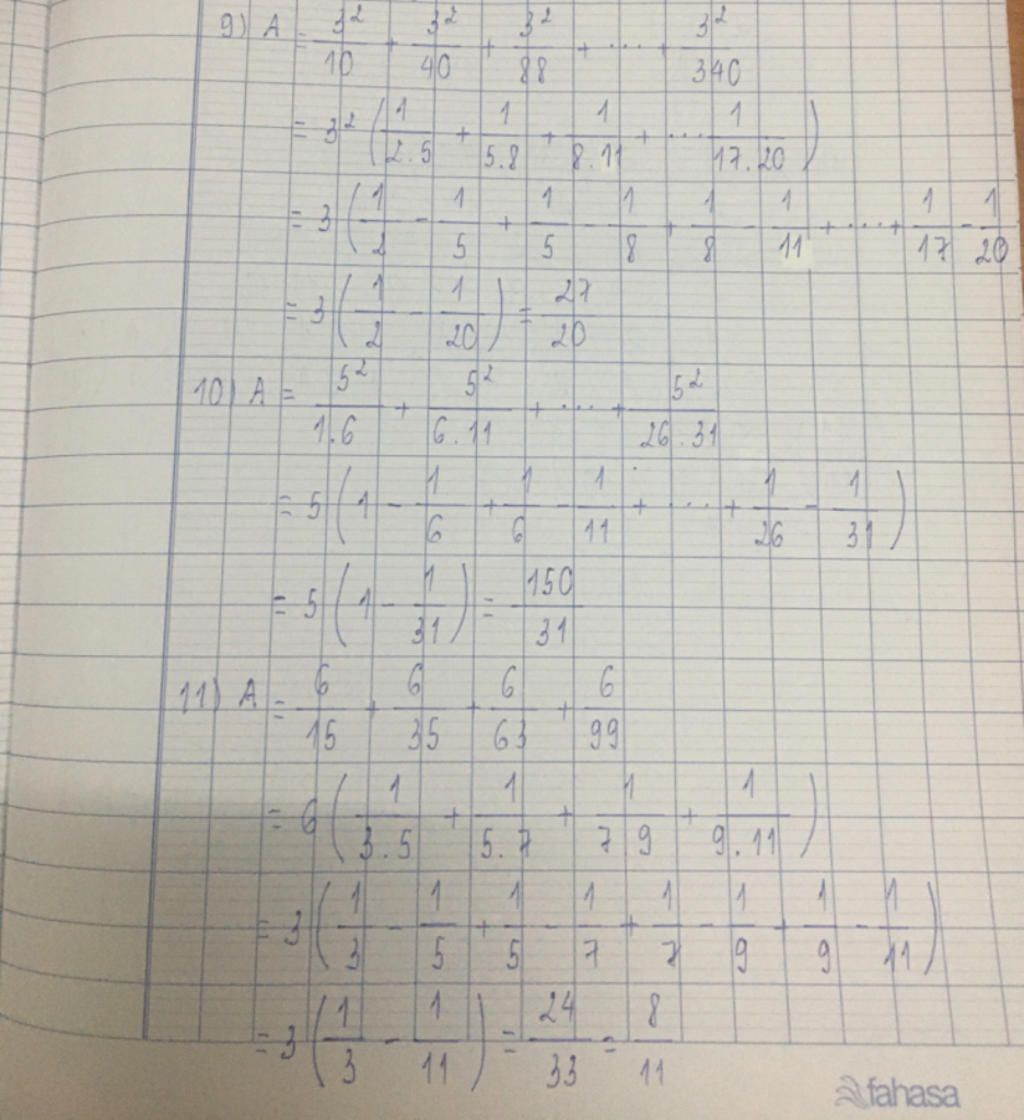 9) A = 3²/10 + 3²/40 + 3²/88 + .... + 3²/340
= 3² (1/2.5 + 1/5.8 + 1/8.11 + ... 1/17.20)
= 3 (1/2 - 1/5 + 1/5 - 1/8 + 1/8 - 1/11 + .... + 1/17 - 1/20
= 3 (1/2 - 1/20) = 27/20
10) A = 5²/1.6 + 5²/6.11 + .... + 5²/26.31
= 5 (1 - 1/6 + 1/6 - 1/11 + .... + 1/26 - 1/31)
= 5 (1 - 1/31) = 150/31
11) A = 6/15 + 6/35 + 6/63 + 6/99
= 6 (1/3.5 + 1/5.7 + 1/7 9 + 1/9.11)
= 3 (1/3 - 1/5 + 1/5 - 1/7 + 1/7 - 1/9 + 1/9 - 1/11)
= 3 (1/3 - 1/11) = 24/33 = 8/11
fahasa